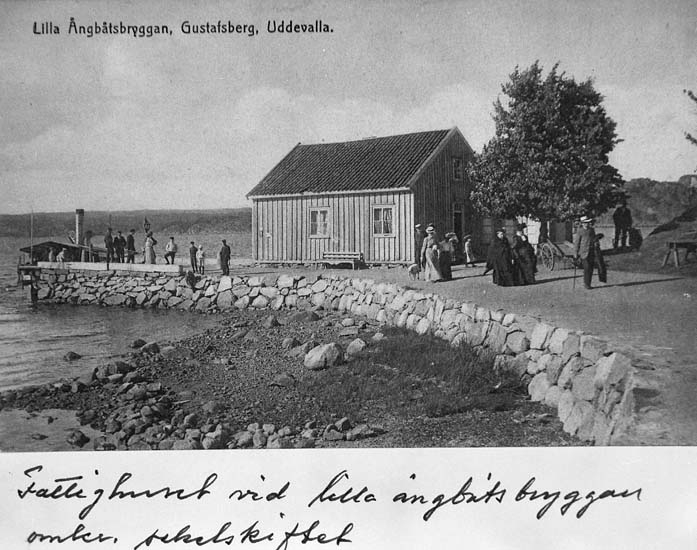 Lilla Ångbåtsbryggan, Gustafsberg, Uddevalla.
Fattighuset vid lilla ångbåtsbryggan
omkr. sekelskiftet